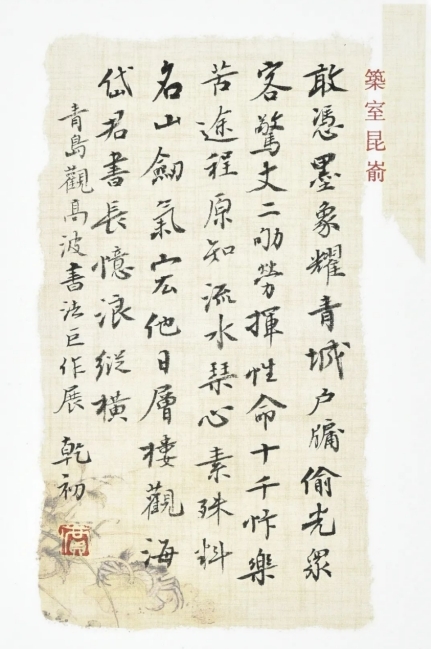 築室昆嵛
敢憑墨象耀青城戶牖偷光眾
客驚丈二劬勞揮性命十千忭樂
苦途程原知流水琴心素殊料
名山劍氣宏他日層樓觀海
岱君書長憶浪縱橫
青島觀高波書法巨作展 乾初